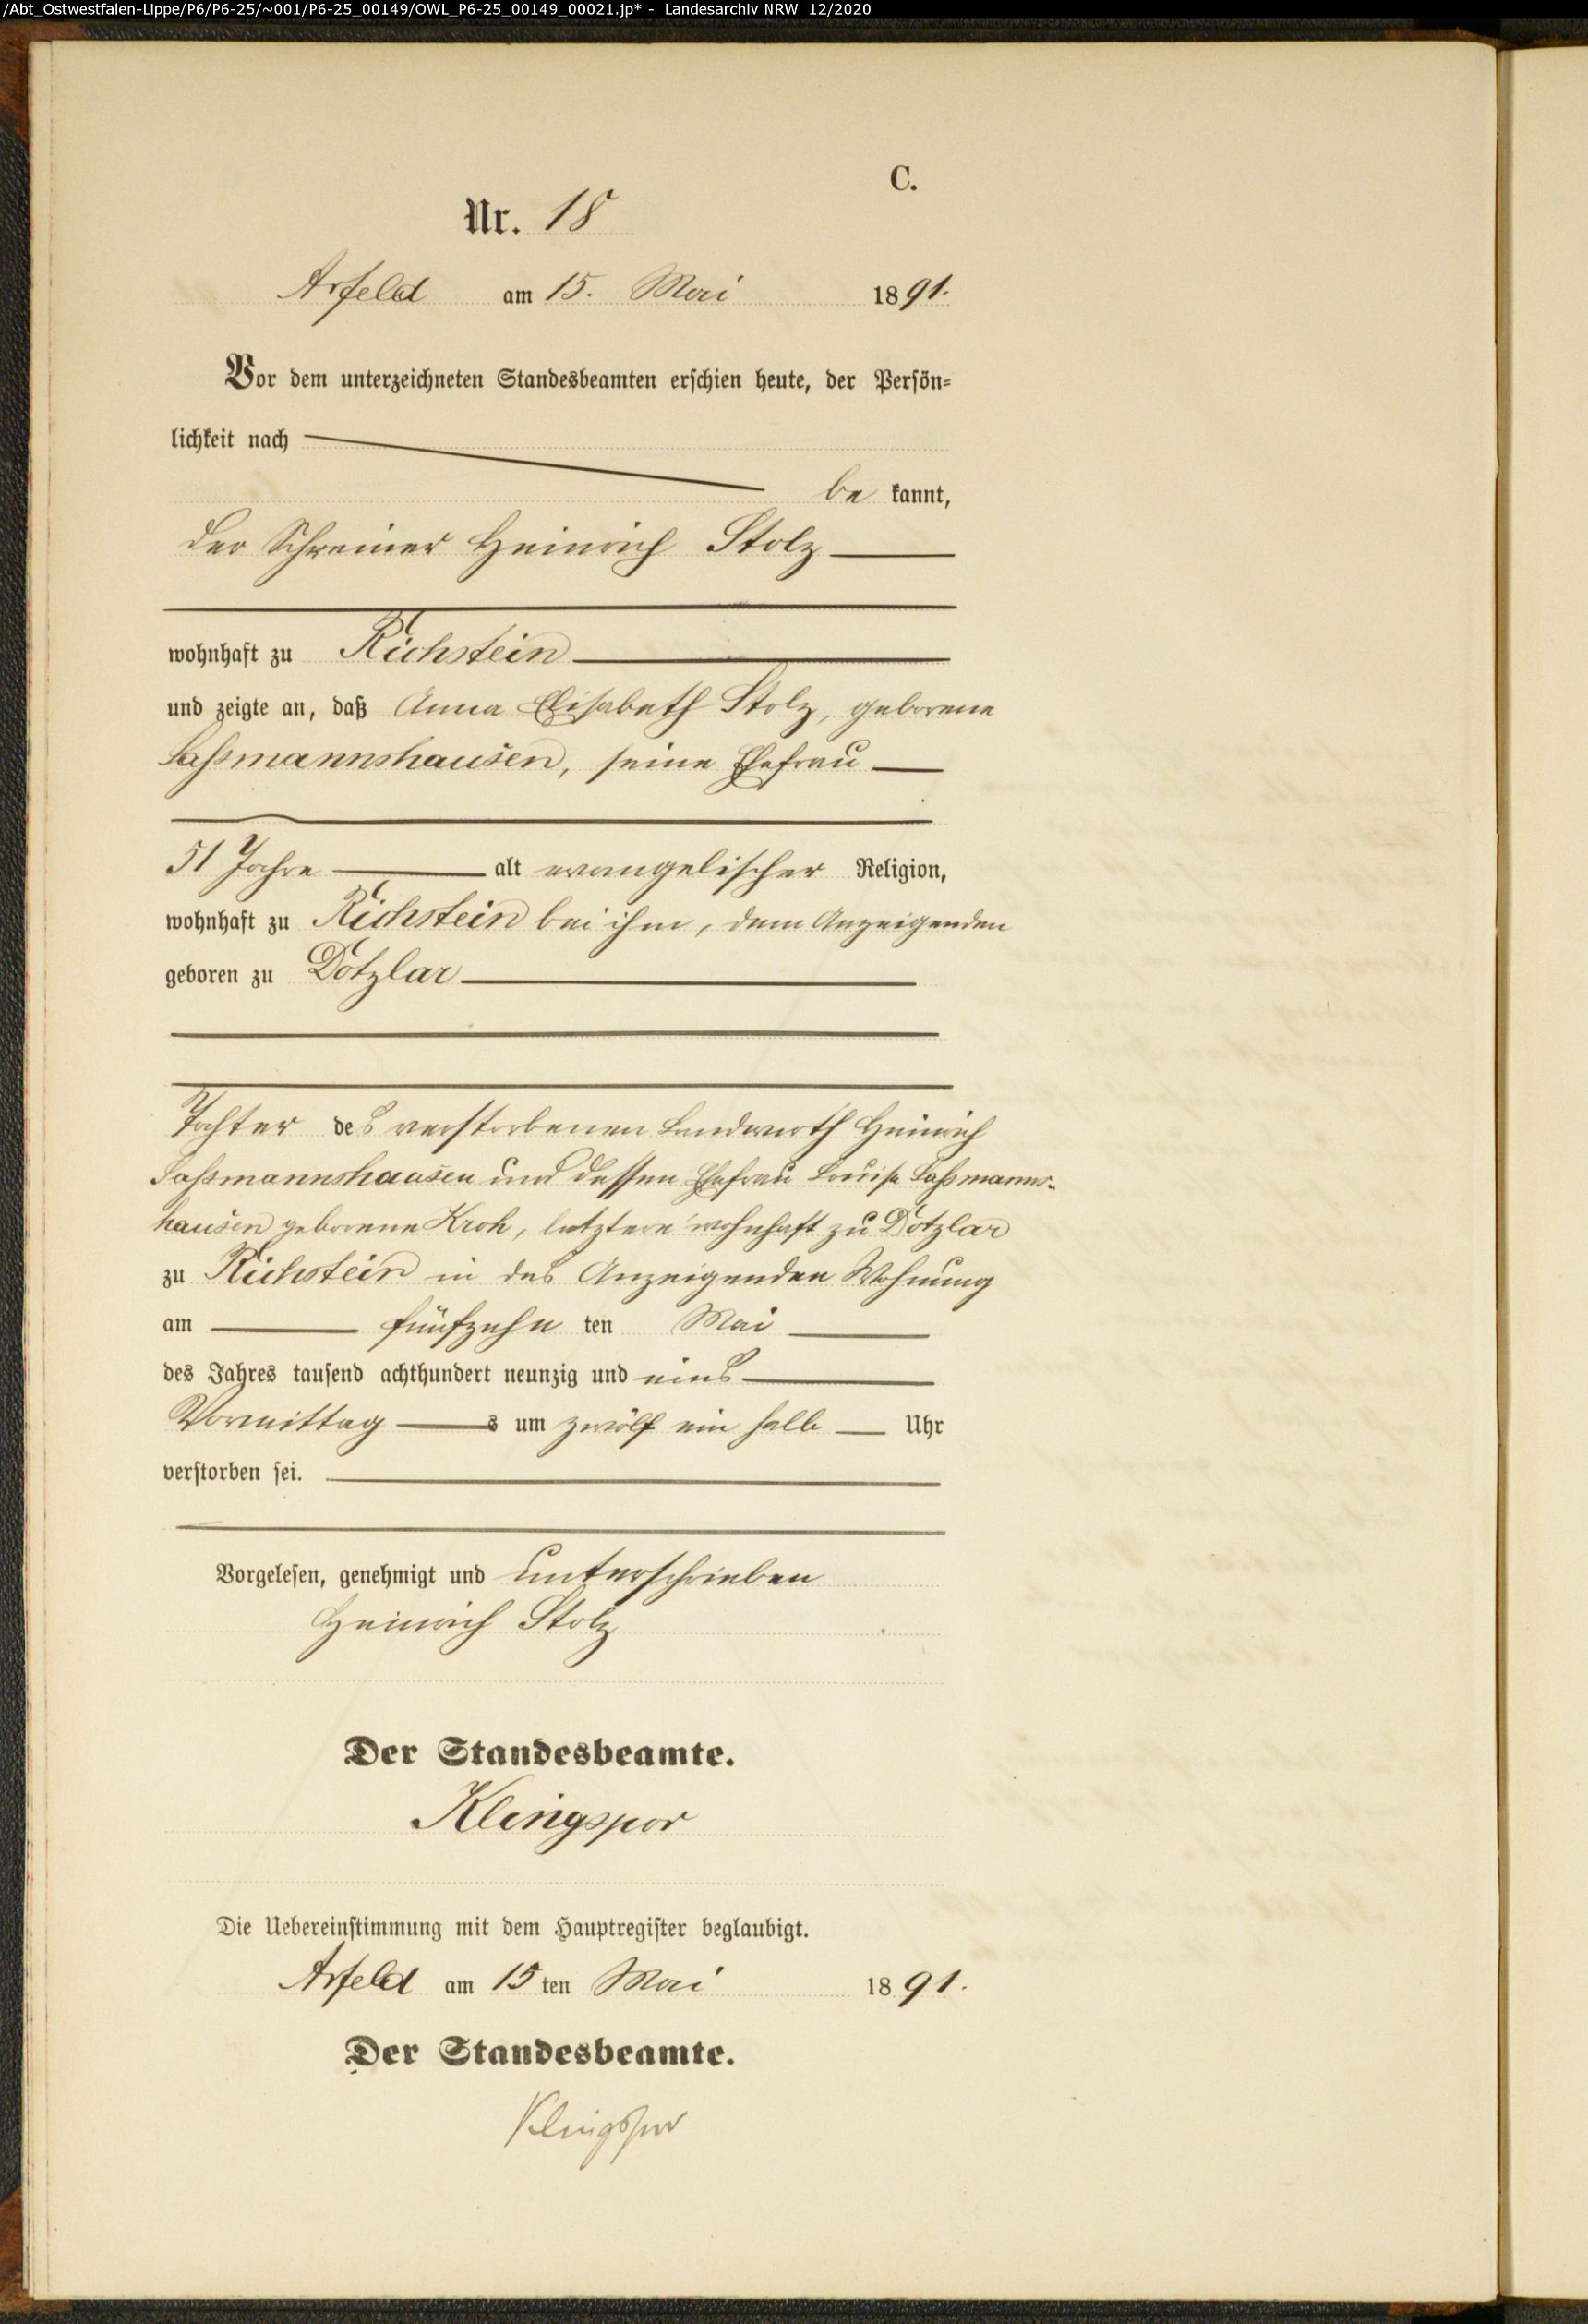 /Abt_Ostwestfalen-Lippe/P6/P6-25/~001/P6-25_00149/OWL_P6-25_00149_00021.jp* - Landesarchiv NRW 12/2020
C.
Nr. 18
Arfeld am 15. Mai 1891.
Vor dem unterzeichneten Standesbeamten erschien heute, der Persön-
lichkeit nach
be kannt,
der Schreiner Heinrich Stolz
wohnhaft zu Richstein
und zeigte an, daß Anna Elisabeth Stolz, geborene
Laßmannshausen, seine Ehefrau
51 Jahre alt evangelischer Religion,
wohnhaft zu Richstein bei ihm, dem Anzeigenden
geboren zu Dotzlar
Tochter des verstorbenen Landwirth Heinrich
Saßmannshausen und dessen Ehefrau Louise Saßmanns-
hausen geborene Kroh, letztere wohnhaft zu Dotzlar
zu Richstein in des Anzeigenden Wohnung
am fünfzehn ten Mai
des Jahres tausend achthundert neunzig und eins
Vormittag s um zwölf ein halb Uhr
verstorben sei.
Vorgelesen, genehmigt und unterschrieben
Heinrich Stolz
Der Standesbeamte.
Klingspor
Die Uebereinstimmung mit dem Hauptregister beglaubigt.
Arfeld am 15 ten Mai 1891.
Der Standesbeamte.
Klingspor